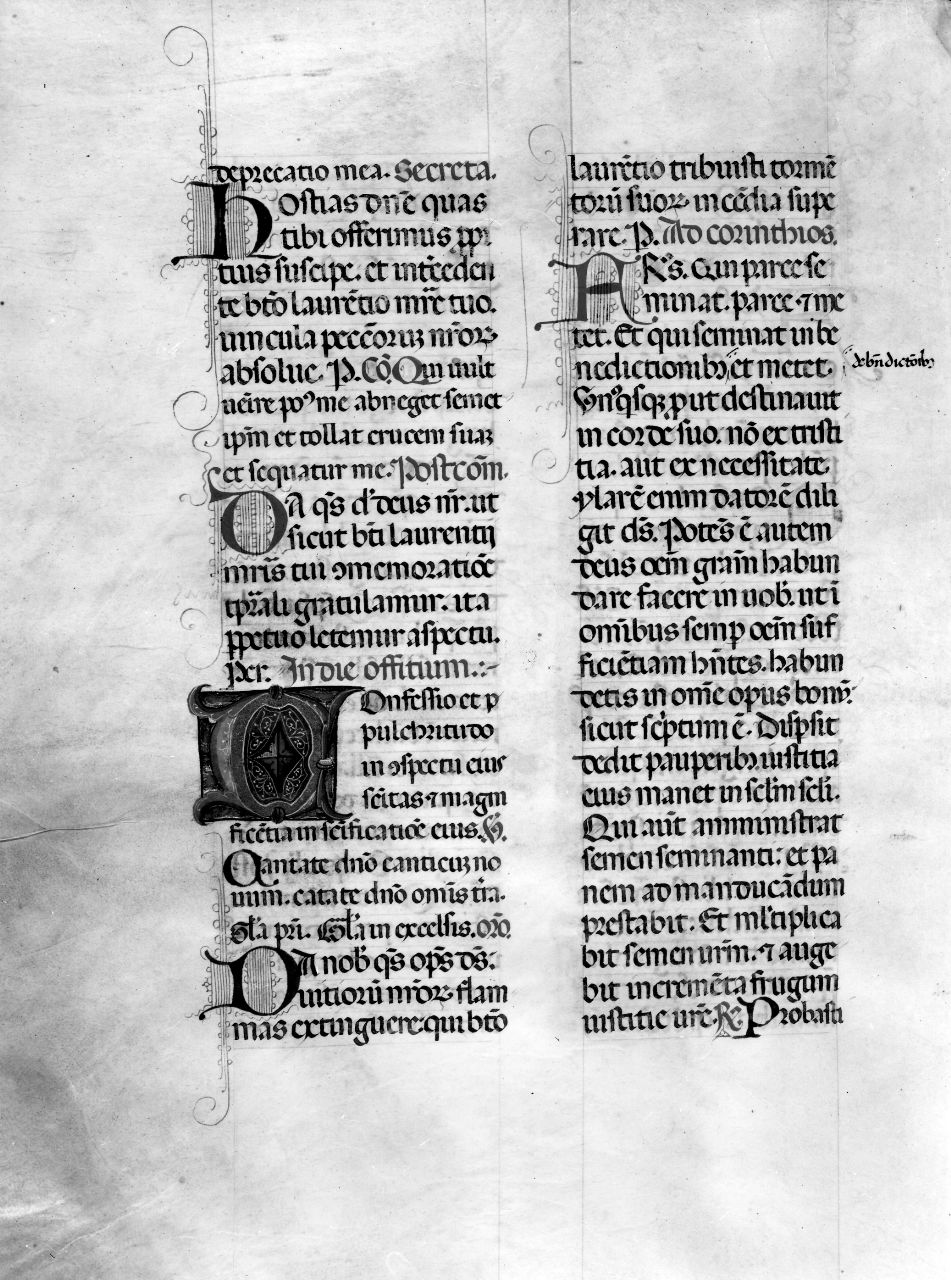 deprecatio mea. Secreta.
hostias dnē quas
tibi offerimus ꝓpi
tius suscipe. et int̄ceden
te bt̄o laurētio mr̄e tuo.
uincula peccōruꝫ nr̄oꝝ
absolue. P. Cō. Qui uult
uēire poꝰ me abneget semet
ip̄m et tollat crucem suaꝫ
et sequatur me. Postcōm.
DA q̄s d' deus nr̄. ut
sicut bt̄i laurentij
mr̄is tui ꝯmemoratiōe
tp̄rali gratulamur. ita
ꝑpetuo letemur aspectu.
Per. In die offitium.:-
COnfessio et p
pulchritudo
in ꝯspectu eius
scītas ⁊ magni
ficētia in sc̄ificatiōe eius. V.
Cantate dn̄o canticuꝫ no
uum. cātate dn̄o omīs tr̄a.
Gl'a pr̄i. Gl'a in excelsis. orō.
DA nob' q̄s op̄s ds̄.
uitiorū nr̄oꝝ flam
mas extinguere. qui bt̄o
laurētio tribuisti tormē
torū suoꝝ incēdia supe
rare. P. Ad corinthios.
FRs̄. Qui parce se
minat. parce ⁊ me
tet. Et qui seminat in be
nedictionibꝫ et metet. de bn̄dictōnibꝫ
Vn°qsqꝫ ꝓut destinauit
in corde suo. nō ex tristi
tia. aut ex necessitate.
ylarē enim datorē dili
git ds̄. Potēs ē autem
deus oēm grām habun
dare facere in uob'. ut ī
omībus semꝑ oēm suf
ficiētiam hn̄tes. habun
detis in om̄e opus bonū.
sicut sc̄ptum ē. Dispsit
dedit pauperibꝫ iustitia
eius manet in sclm̄ scl̄i.
Qui aūt amministrat
semen seminanti: et pa
nem ad manducādum
prestabit. Et ml'tiplica
bit semen ur̄m. ⁊ auge
bit incremēta frugum
iustitie ur̄e. R. Probasti